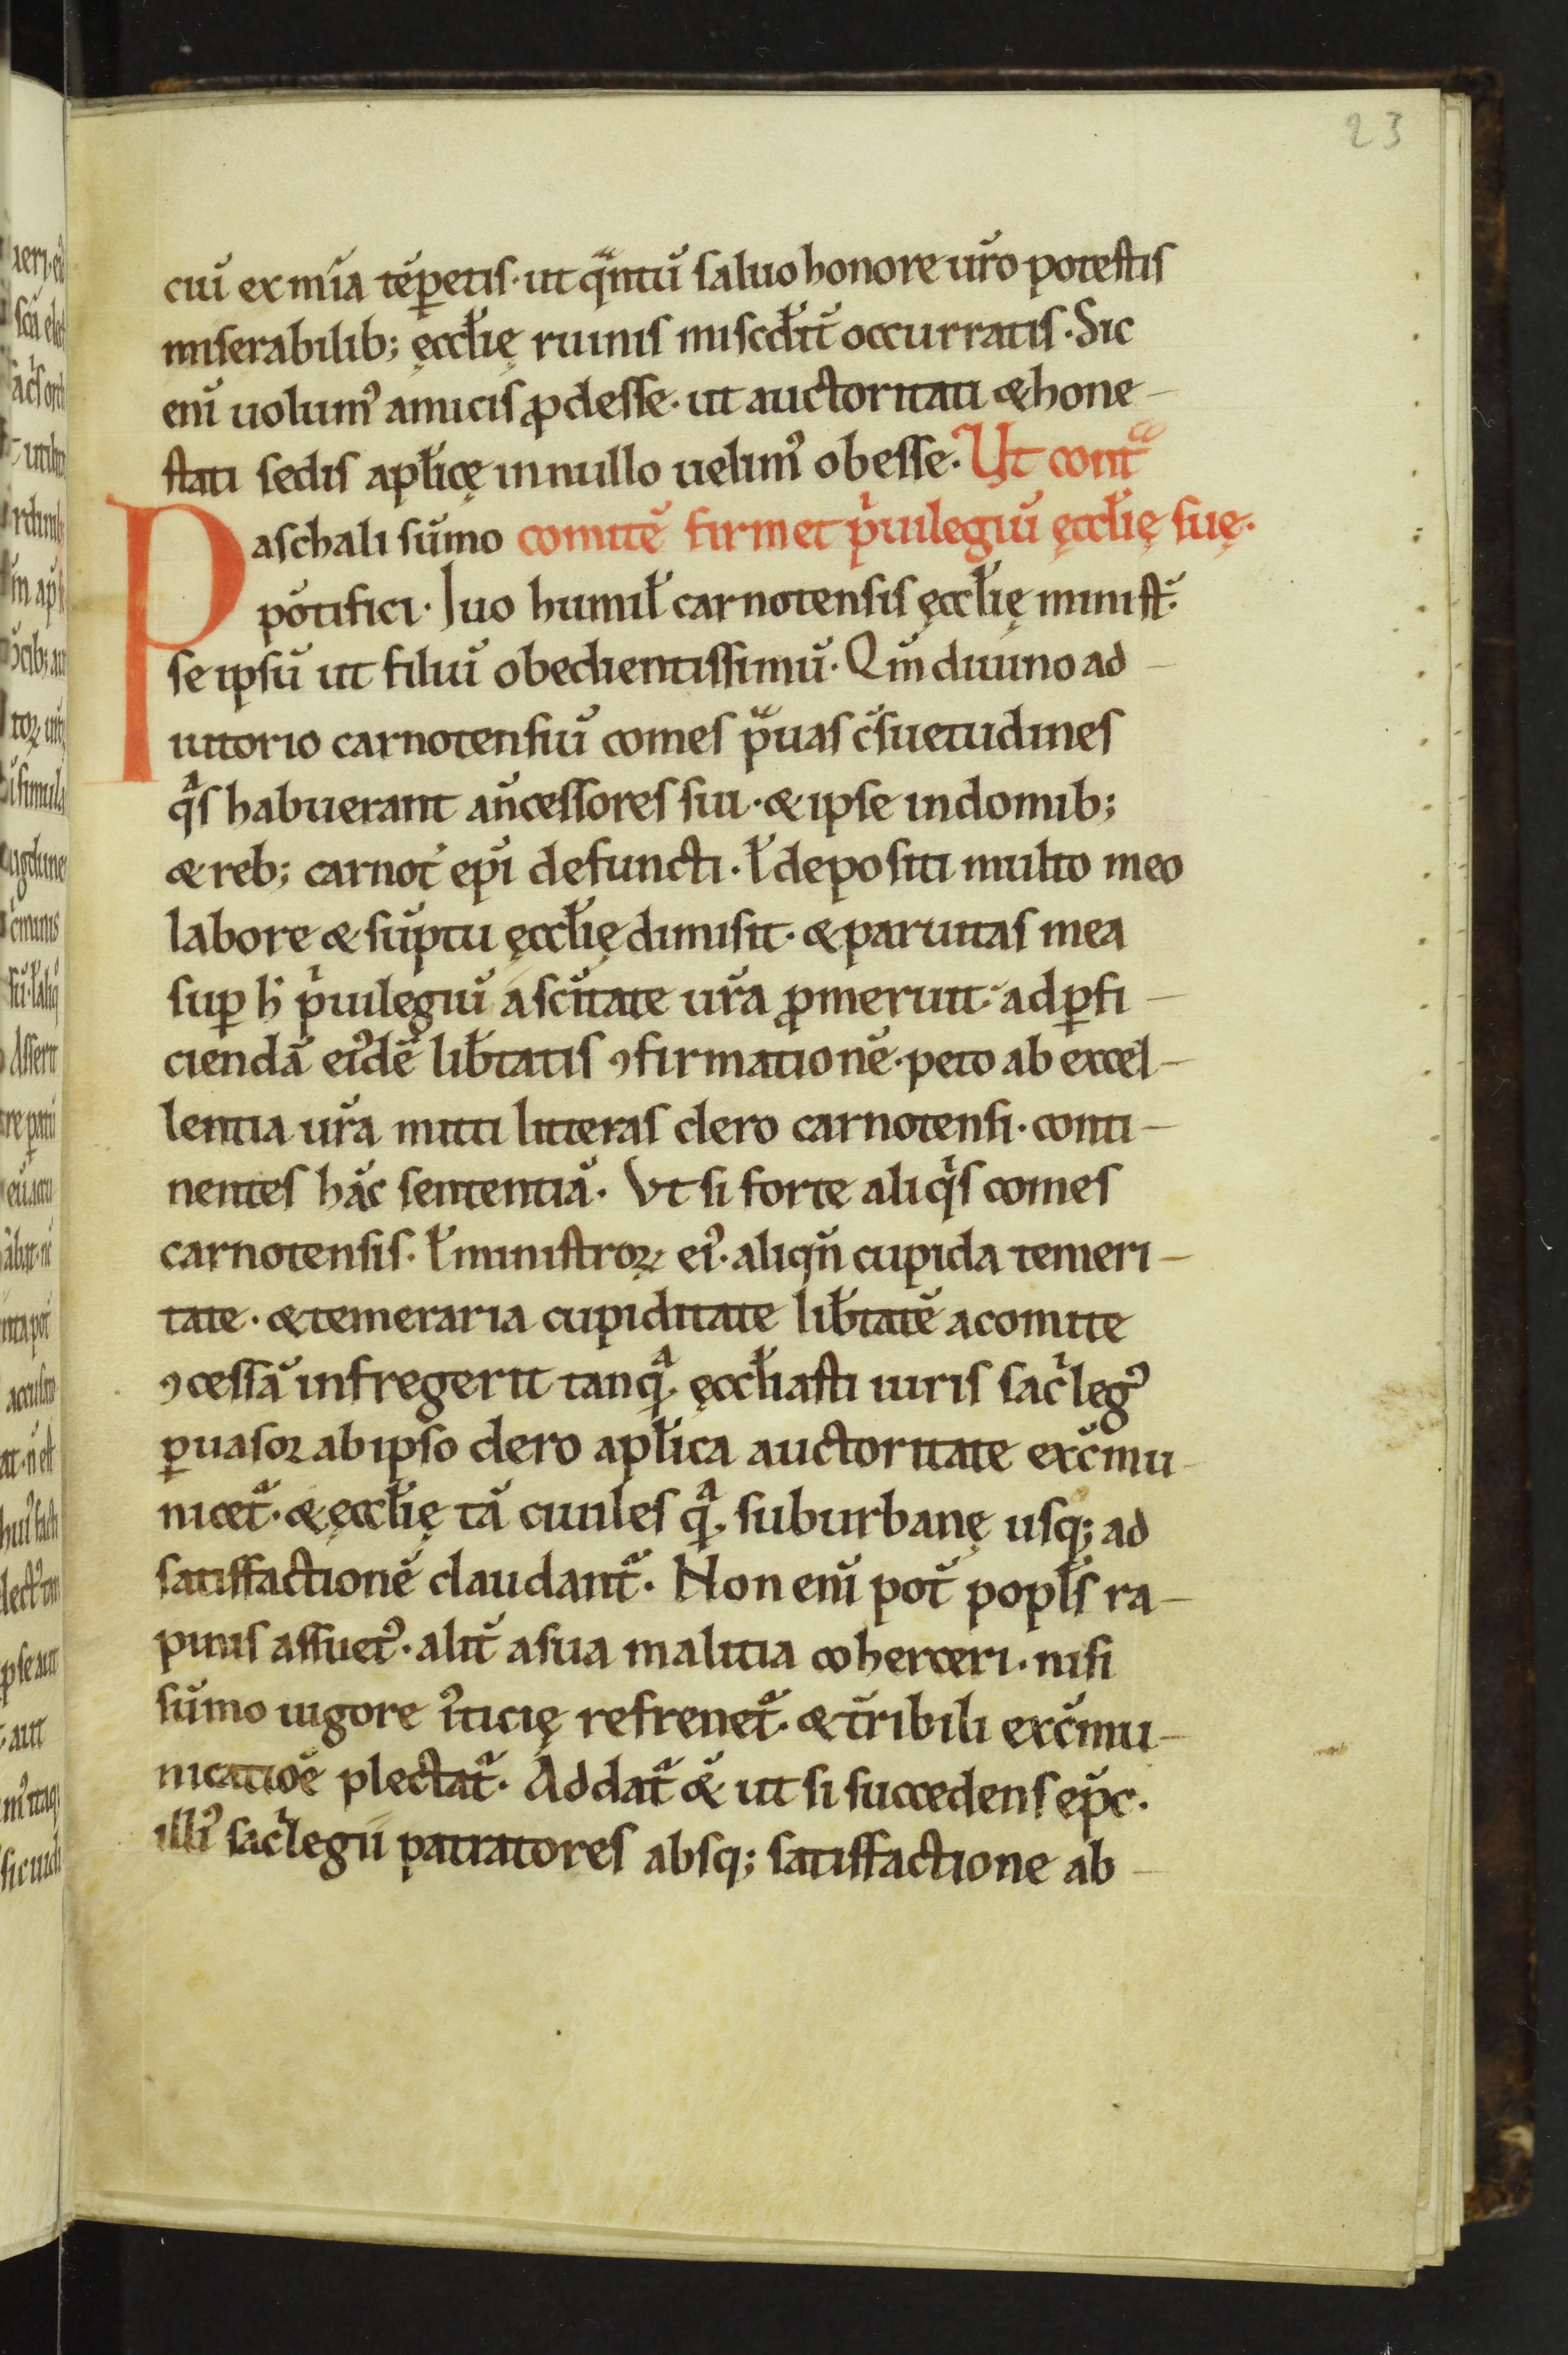 23
cuī ex mīa tēꝑetis· ut qᵃntū saluo honore ur̄o potestis
miserabilib; ęccƚię ruinis miscđit̄ occurratis· Sic
enī uolum᾽ amicis ꝓdesse· ut auctoritati & hone-
stati sedis apƚicę in nullo uelim᾽ obesse· Ut contᵃ
aschali sūmo comitē firmet pⁱuilegiū ęccƚię suę·
Pōtifici· Iuo humiƚ carnotensis ęccƚię minist̄·
se ipsū ut filiū obedientissimū· Qm̄ diuino ad-
iutorio carnotensiū comes pᵃuas c̄suetudines
qᵃs habuerant an̄cessores sui· & ipse in domib;
& reb; carnot̄ epī defuncti· ƚ depositi multo meo
labore & sūptu ęccƚię dimisit· & paruitas mea
suꝑ h̄ pⁱuilegiū a sc̄itate ur̄a ꝓmeruit· ad ꝑfi-
ciendā ei᾽dē liƀtatis ꝯfirmationē· peto ab excel-
lentia ur̄a mitti litteras clero carnotensi· conti-
nentes hāc sententiā· Ut si forte aliqⁱs comes
carnotensis· ƚ ministroꝝ ei᾽· aliqn̄ cupida temeri-
tate· & temeraria cupiditate liƀtatē a comite
ꝯcessā infregerit tanqᵃ· ęccƚiasti iuris sacⁱleg᾽
ꝑuasor ab ipso clero apƚica auctoritate exc̄mu-
nicet᷑· & ęccƚię tā ciuiles qᵃ· suburbanę usq; ad
satisfactionē claudant᷑· Non enī pot̄ popƚs ra-
pinis assuet᾽· alit̄ a sua malitia coherceri· nisi
sūmo uigore i᾽ticię refrenet᷑· & t̄ribili exc̄mu-
nicatioē plectat᷑· Addat᷑ &̄ ut si succedens ep̄c·
illi᾽ sacⁱlegii patratores absq; satisfactione ab-